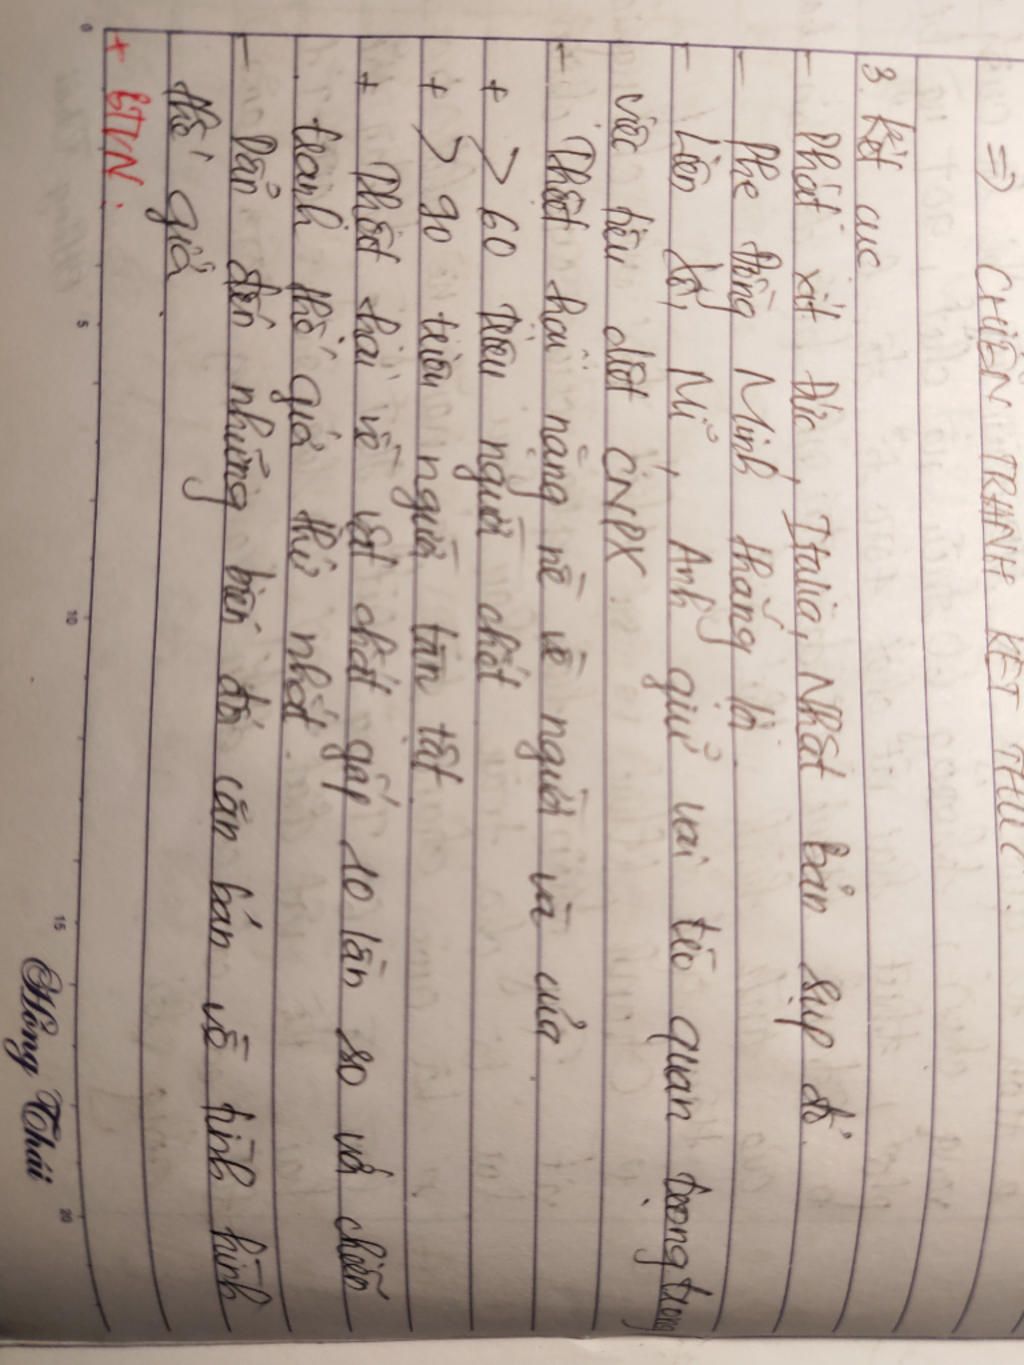 => CHIẾN TRANH KẾT THÚC.
3. Kết cục
- Phát xít Đức, Italia, Nhật bản sụp đổ.
- Phe Đồng Minh thắng lợi.
- Liên Xô, Mĩ, Anh giữ vai trò quan trọng trong
việc tiêu diệt CNPX.
- Thiệt hại nặng nề về người và của.
+ > 60 triệu người chết
+ > 90 triệu người tàn tật
+ Thiệt hại về vật chất gấp 10 lần so với chiến
tranh thế giới thứ nhất.
- Dẫn đến những biến đổi căn bản về tình hình
thế giới.
+ BTVN:
0 5 10 15 20
Hồng Thái